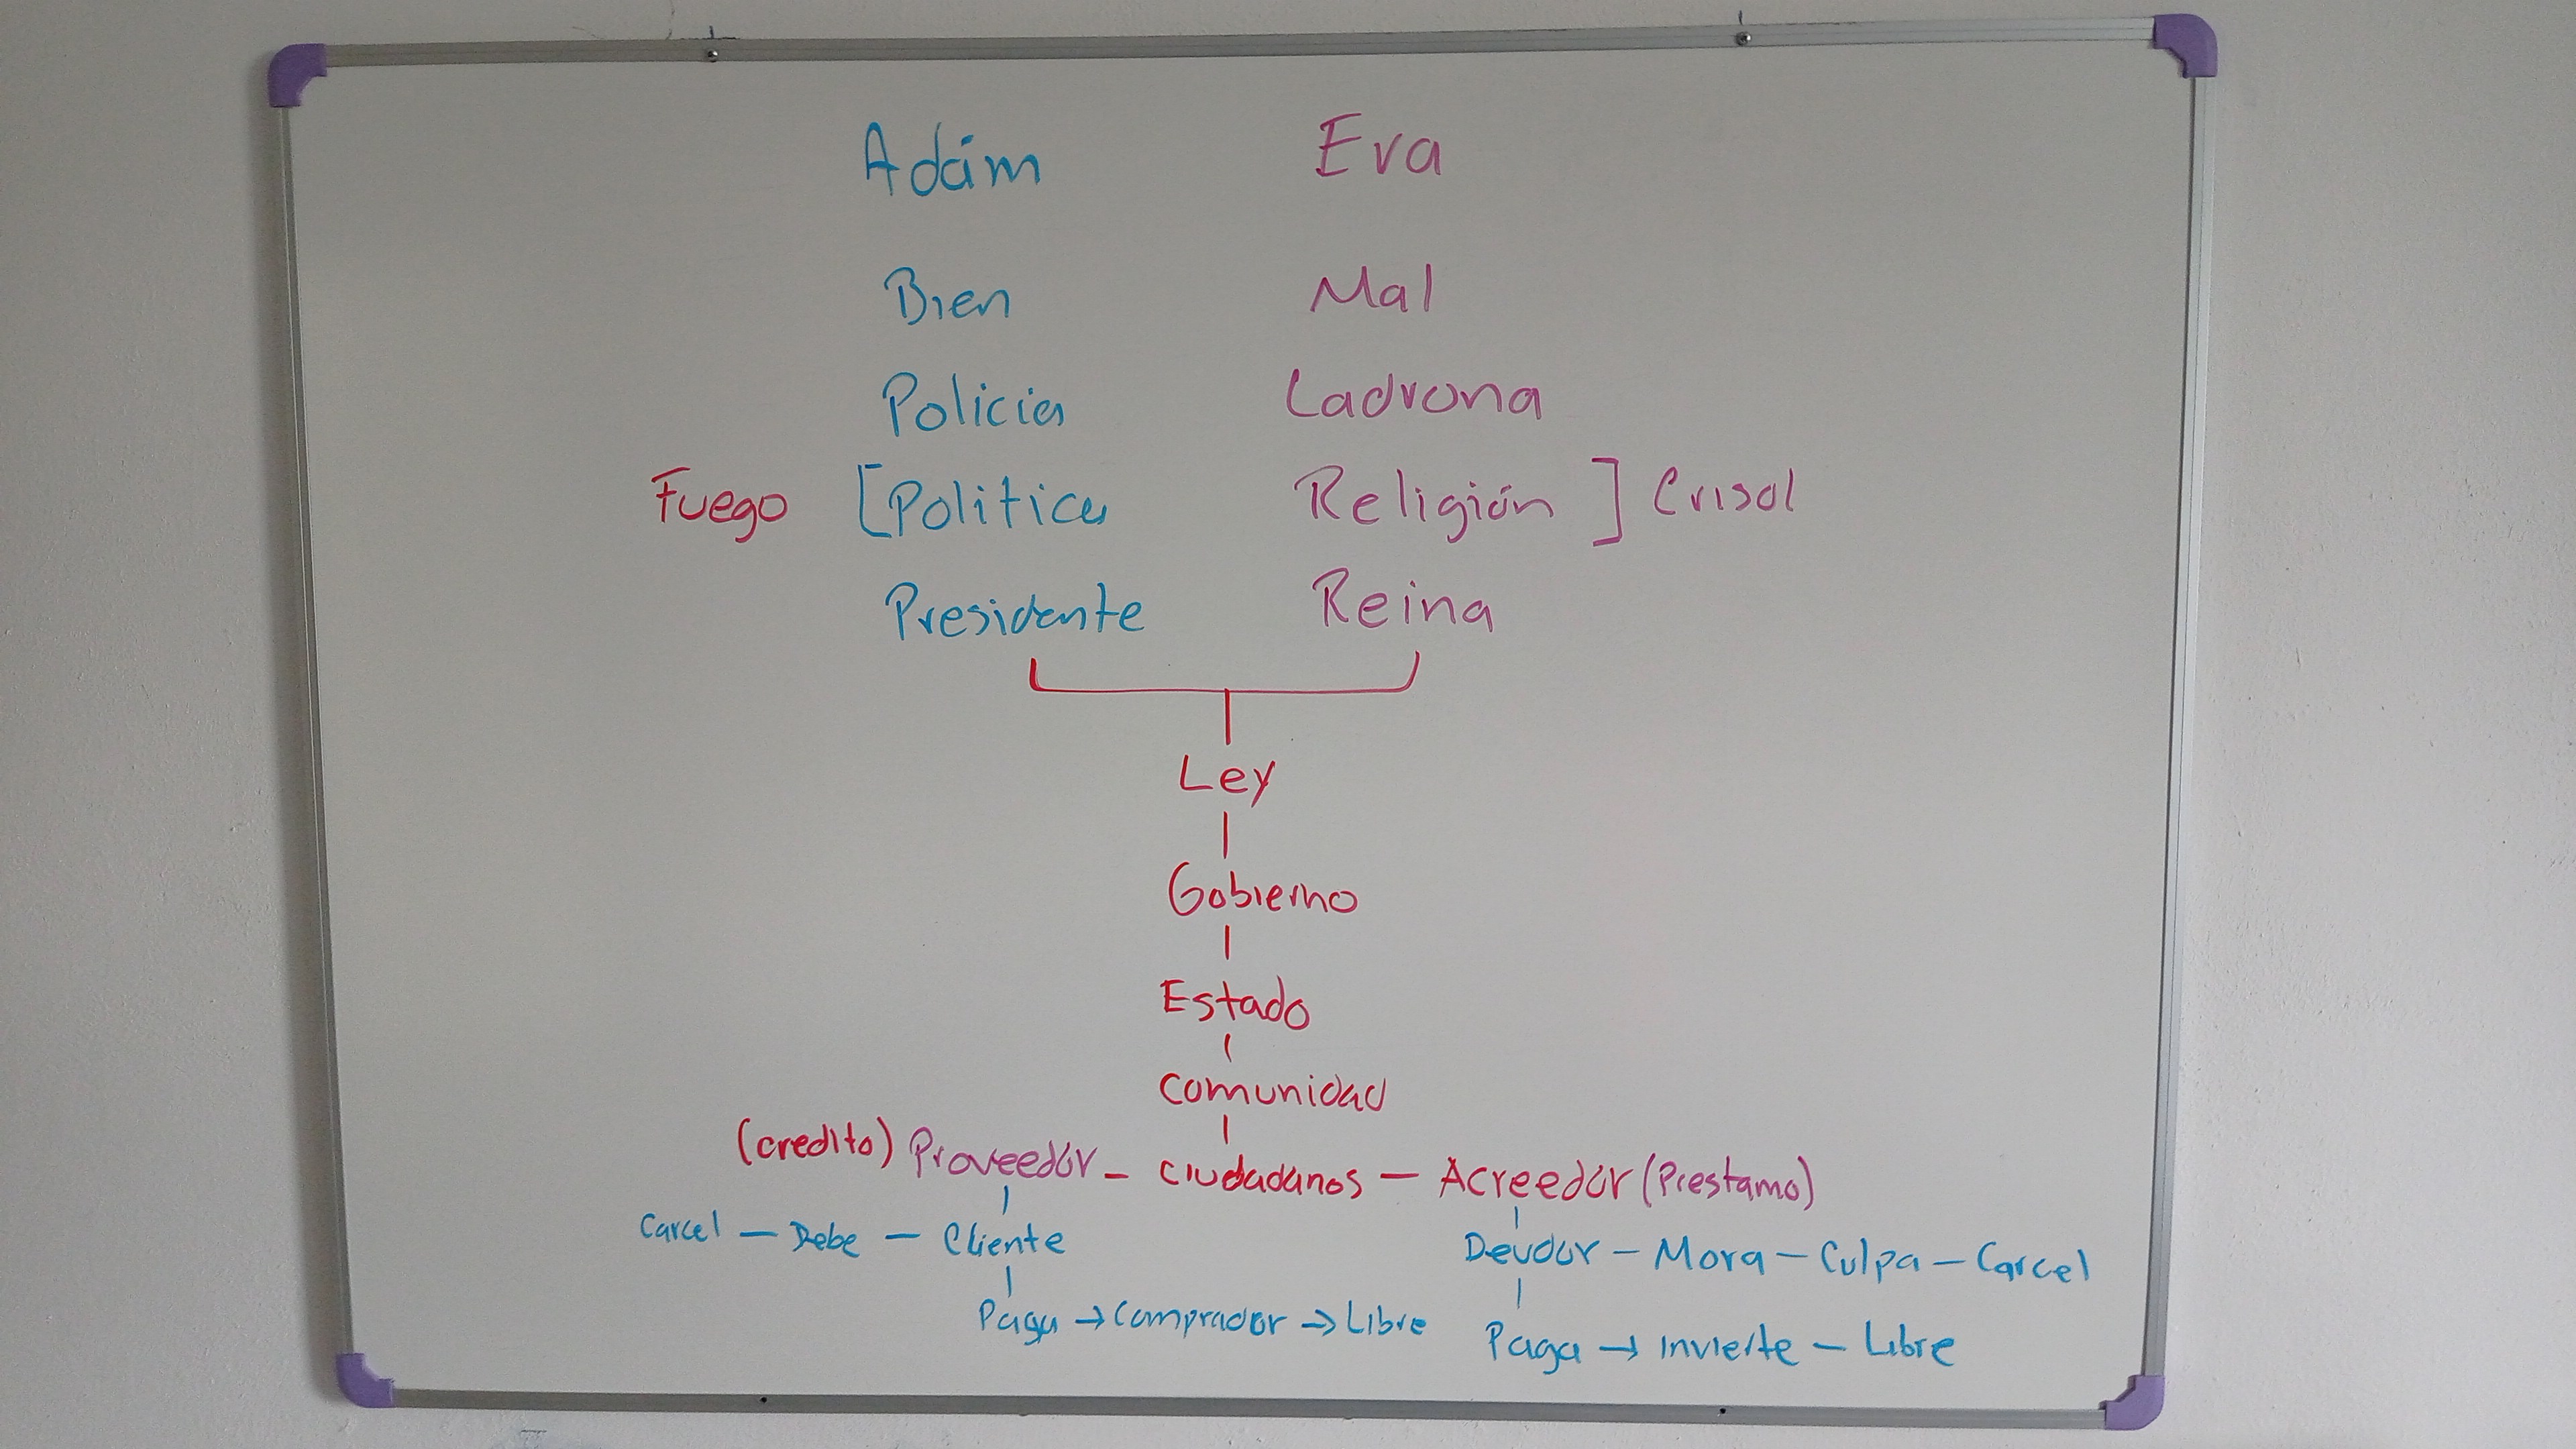 Adám Eva
Bien Mal
Policia Ladrona
Fuego [Politica Religión ] Crisol
Presidente Reina
Ley
Gobierno
Estado
Comunidad
(credito) Proveedor - Ciudadanos - Acreedor (Prestamo)
Carcel - Debe - Cliente Deudor - Mora - Culpa - Carcel
Paga → Comprador → Libre Paga → Invierte - Libre